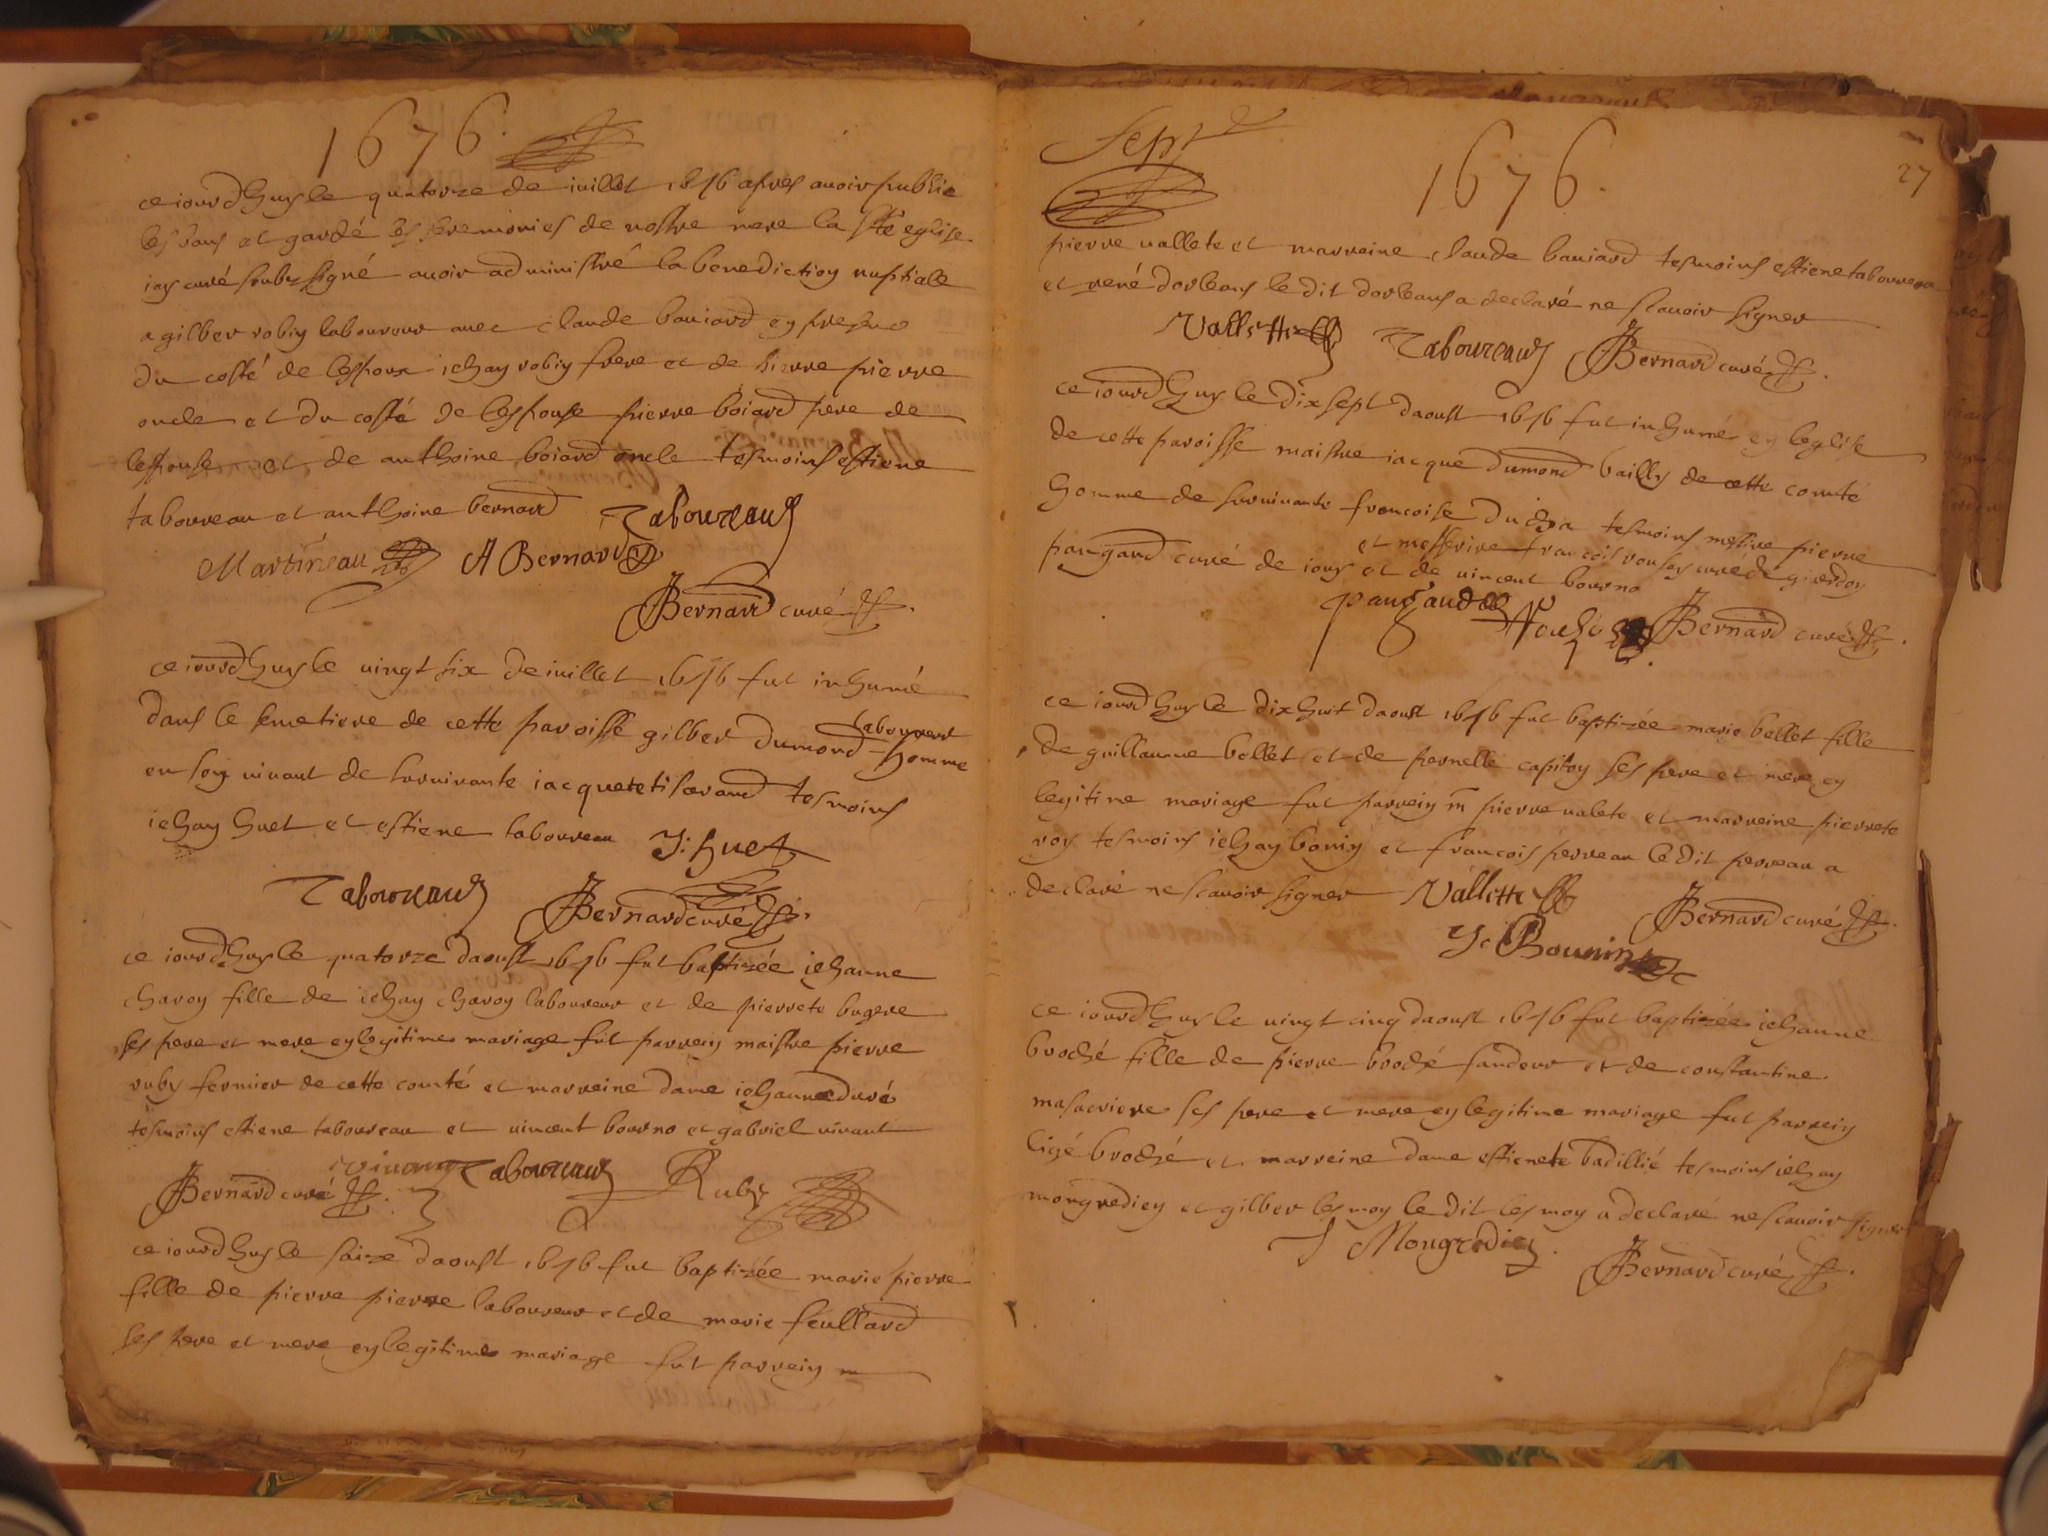 1676.
ce iourdhuy le quatorze de iuillet 1676 apres auoir publie
les bans et gardé les seremonies de nostre mere la ste eglise
iay curé soubz signé auoir administré la benediction nuptialle
a gilber robin laboureur auec claude bauiard en presence
du costé de lespoux iehan robin frere et de pierre pierre
oncle et du costé de lespouse pierre boiard pere de
lespouse et de anthoine boiard oncle tesmoins estiene
taboureau et anthoine bernard Taboureaud
Martineau A Bernard
Bernard curé
ce iourdhuy le uingt six de iuillet 1676 fut inhumé
dans le semetiere de cette paroisse gilber dumond laboureur homme
en son uiuant de suruiuante iacquete tiserand tesmoins
iehan huet et estiene taboureau J: huet
Taboureaud Bernard curé
ce iourdhuy le quatorze daoust 1676 fut baptizée iehanne
charoy fille de iehan charoy laboureur et de pierrete bugere
ses pere et mere en legitime mariage fut parrein maistre pierre
ruby fermier de cette comté et marreine dame iehanne duré
tesmoins estiene taboureau et uincent bourno et gabriel uiuant
Bernard curé uiuant Taboureaud Ruby
ce iourdhuy le saize daoust 1676 fut baptizée marie pierre
fille de pierre pierre laboureur et de marie feullard
ses pere et mere en legitime mariage fut parrein m
Sept
1676.
27
pierre uallete et marreine claude bauiard tesmoins estiene taboureau
et rené dorleans le dit dorleans a declaré ne scauoir signer
Vallette Taboureaud Bernard curé
ce iourdhuy le dix sept daoust 1676 fut inhumé en leglise
de cette paroisse maistre iacque dumond bailly de cette comté
homme de suruiuante francoise tesmoins messire pierre
et messire francois curé de
pangaud curé de iouy et de uincent bourno
pangaud Bernard curé
ce iourdhuy le dix huit daoust 1676 fut baptizée marie bellet fille
de guillaume bellet et de pernelle capitoy ses pere et mere en
legitime mariage fut parrein m pierre ualete et marreine pierrete
roy tesmoins iehan bonin et francois perreau le dit perreau a
declaré ne scauoir signer Vallette Bernard curé
J Bounin
ce iourdhuy le uingt cinq daoust 1676 fut baptizée iehanne
broché fille de pierre broché fandeur et de constantine
masacriere ses pere et mere en legitime mariage fut parrein
ligé broché et marreine dame estienete badillié tesmoins iehan
mongredien et gilber lesmoy le dit lesmoy a declaré ne scauoir signer
J Mongredien Bernard curé